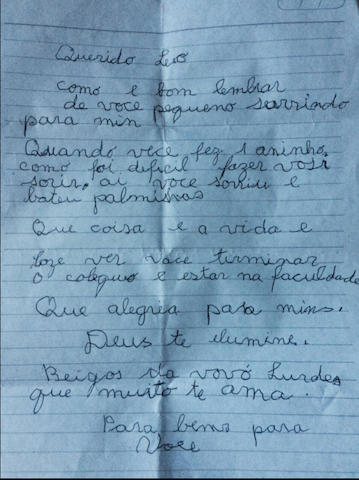 Querido Leo
como e bom lembrar
de voce pequeno sarrindo
para min
Quando voce fez 1 aninho,
como foi dificil fazer vosr
sorir, ai voce sorriu e
bateu palminhas
Que coisa e a vida e
hoze ver voce tirminar
o coleguio e estar na faculdade
Que alegria para mins.
Deus te elumine.
Beigos da vovó Lurdes
que muito te ama.
Para bems para
Voce